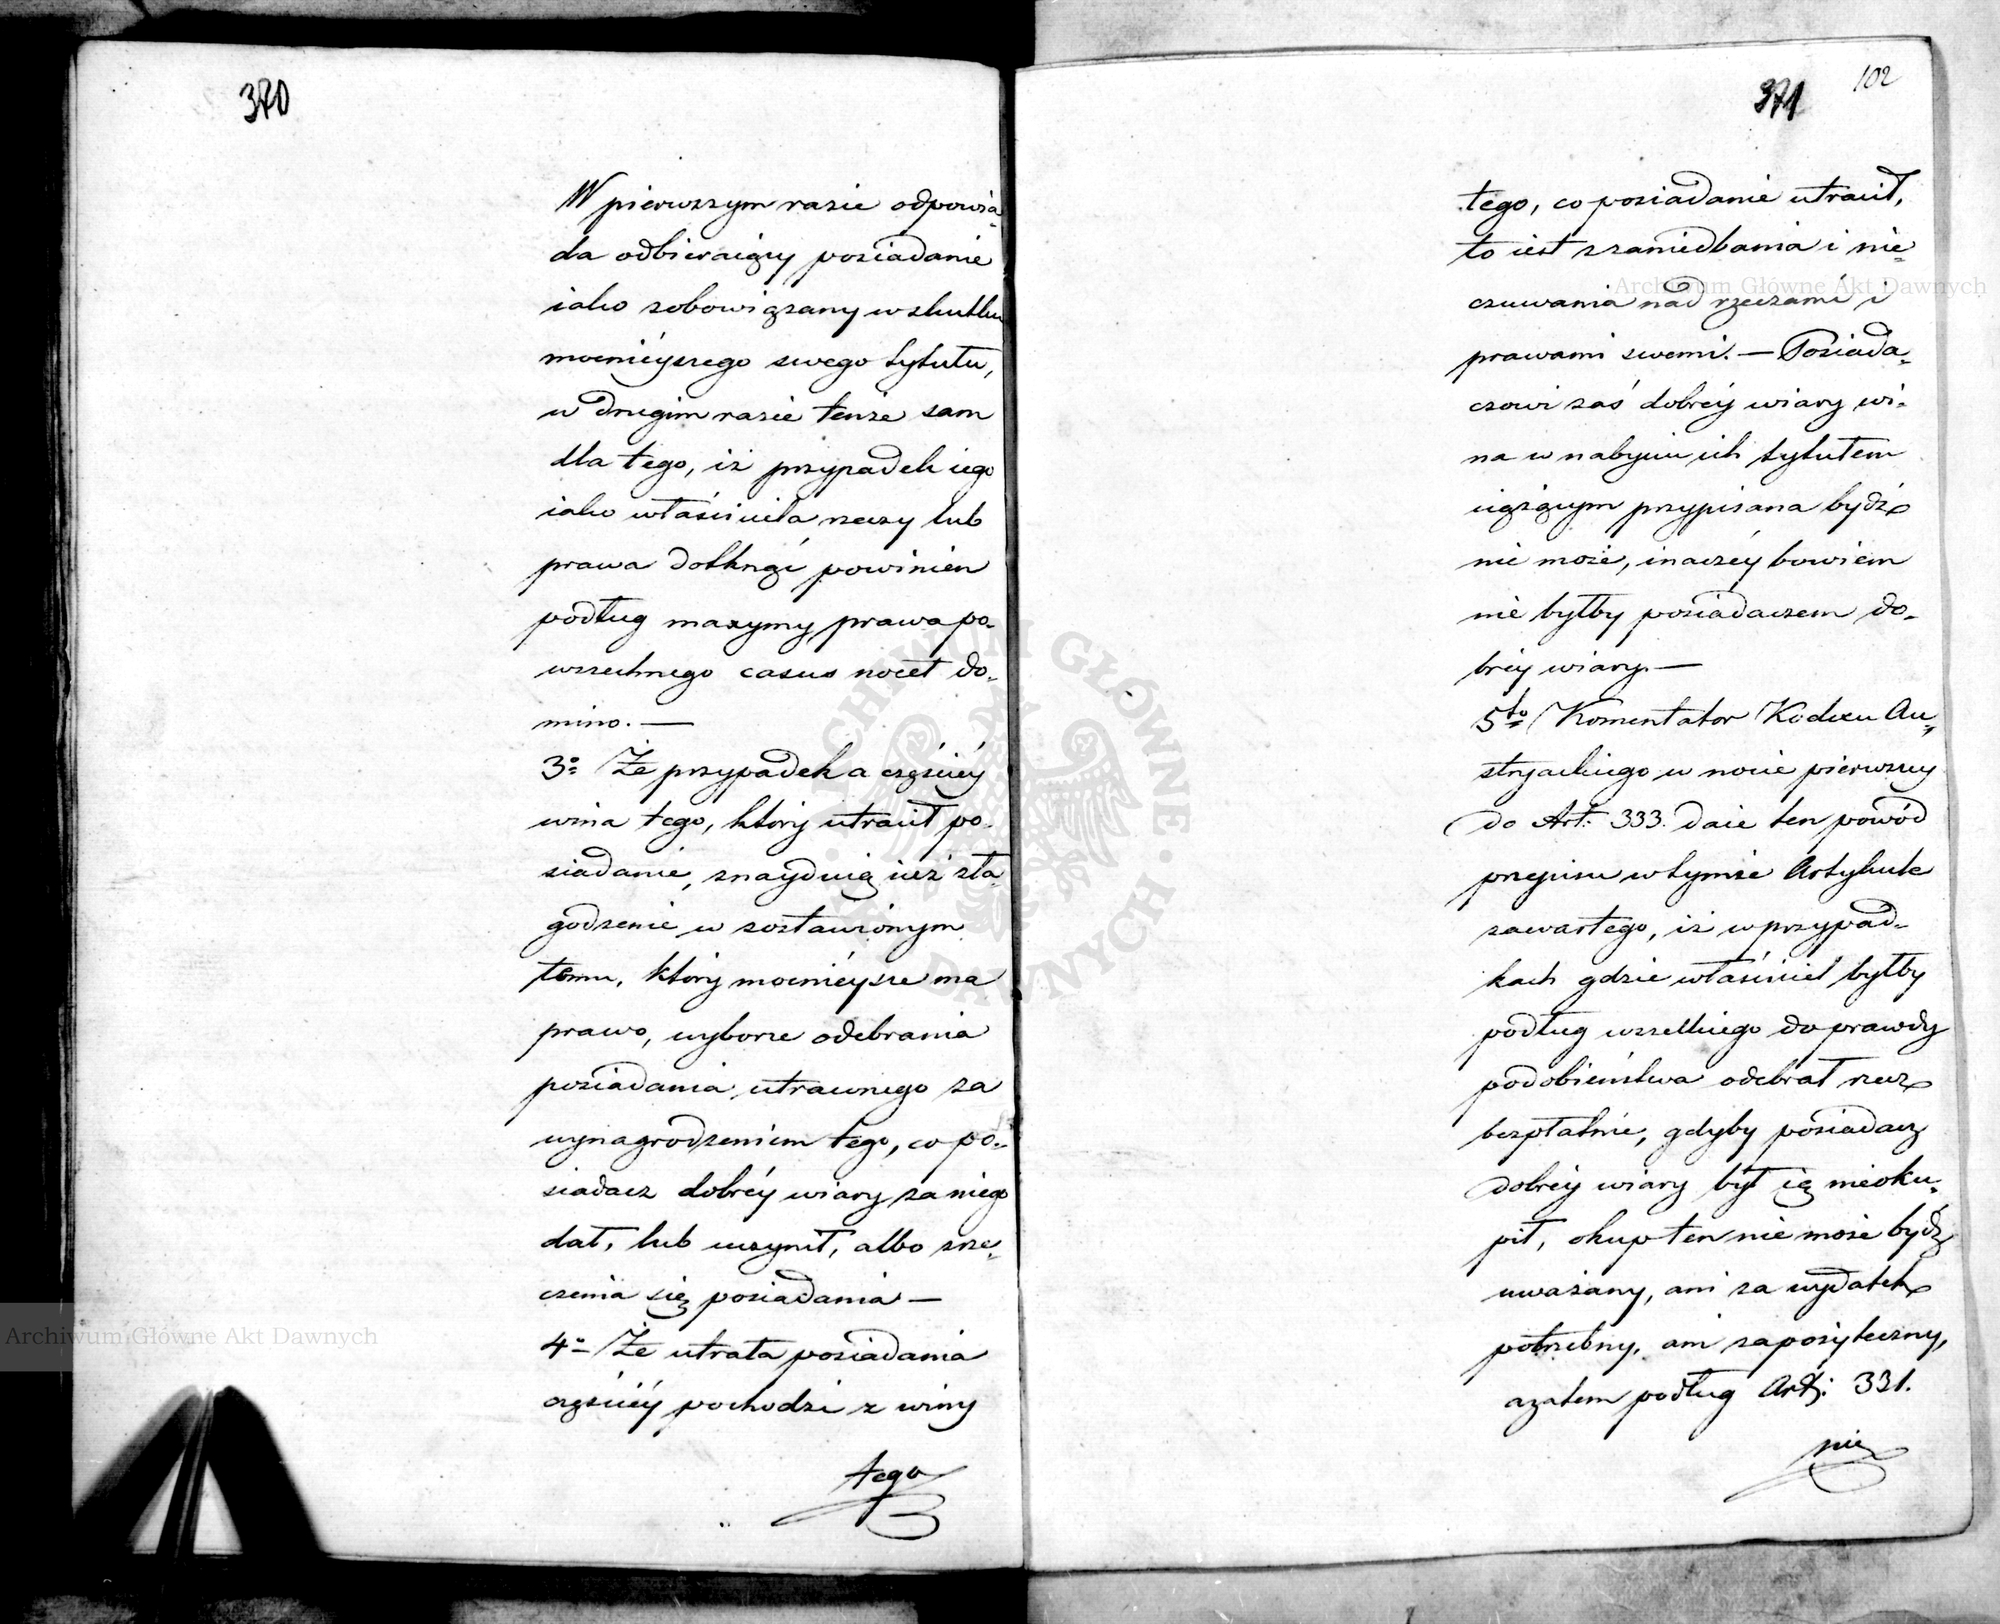 370
W pierwszym razie odpowia-
da odbieraiący posiadanie
iako zobowiązany w skutku
mocnieyszego swego tytułu,
w drugim razie tenże sam
dla tego, iż przypadek iego
iako właściciela rzeczy lub
prawa dotknąć powinien
podług maxymy prawa po-
wszechnego casus nocet do-
mino. —
3o Że przypadek a częściéy
wina tego, który utracił po-
siadanie, znayduią iuż zła-
godzenie w zostawionym
temu, który mocniéysze ma
prawo, wyborze odebrania
posiadania utraconego za
wynagrodzeniem tego, co po-
siadacz dobréy wiary za niego
dał, lub uczynił, albo zrze-
czenia się posiadania —
4o Że utrata posiadania
częściéy pochodzi z winy
tego
102
371
tego, co posiadanie utracił,
to iest z zaniedbania i nie-
czuwania nad rzeczami i
prawami swemi. — Posiada-
czowi zaś dobréy wiary wi-
na w nabyciu ich tytułem
ciążącym przypisana bydź
nie może, inaczéy bowiem
nie byłby posiadaczem do-
bréy wiary. —
5to Komentator Kodexu Au-
stryackiego w nocie pierwszey
do Art: 333. daie ten powód
przepisu w tymże Artykule
zawartego, iż w przypad-
kach gdzie właściciel byłby
podług wszelkiego do prawdy
podobieństwa odebrał rzecz
bezpłatnie, gdyby posiadacz
dobréy wiary był ią nieoku-
pił, okup ten nie może bydź
uważany, ani za wydatek
potrzebny, ani za pożyteczny,
a zatem podług Art: 331.
nie
Archiwum Główne Akt Dawnych
Archiwum Główne Akt Dawnych
ARCHIWUM GŁÓWNE · AKT DAWNYCH ·